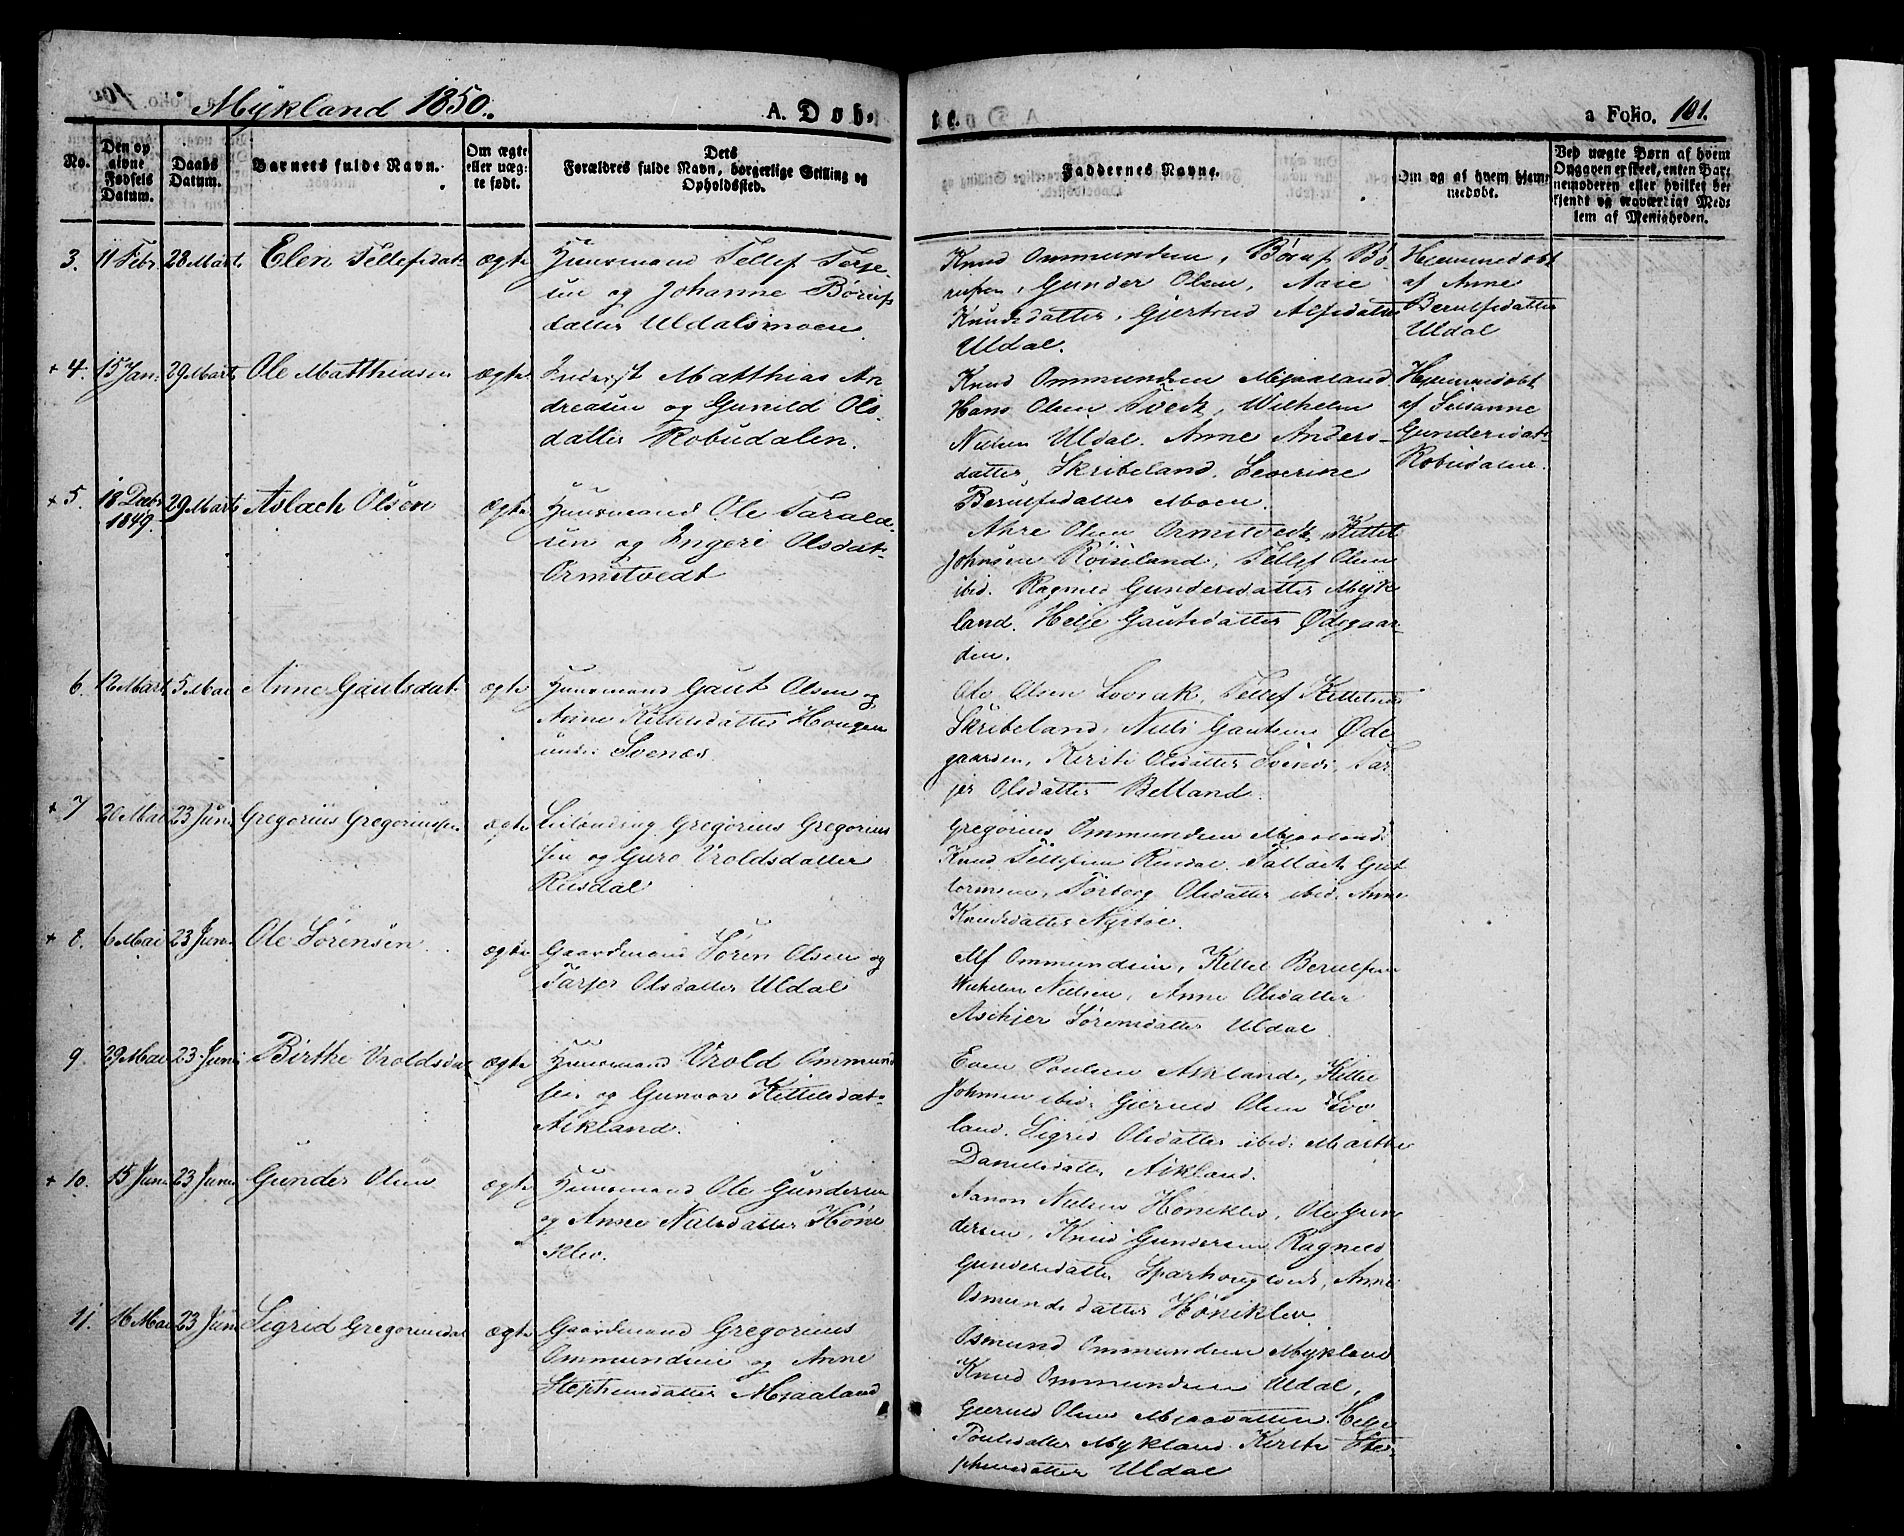 Mykland 1850.
A. Døb-
te.
a Folio. 101.
No.
Den op
givne
Fødsels
Datum.
Daabs
Datum.
Barnets fulde Navn.
Om ægte
eller uæg-
te født.
Dets
Forældres fulde Navn, borgerlige Stilling og
Opholdssted.
Faddernes Navne.
Om og af hvem hjem-
medøbt.
Ved uægte Børn af hvem
Opgaven er skeet, enten Bar-
nemoderen eller hvilket be-
kjendt og agtværdigt Med-
lem af Menigheden.
3. 11 Febr. 28 Marts Elen Tellefsdat. ægte
Huusmand Tellef Terje-
sen og Johanne Børufs
datter Uldalsmoen
Knud Ommundsen, Børuf Bø-
rufsen, Gunder Olsen, Aase
Knudsdatter, Gjertrud Alfsdatter
Uldal.
Hjemmedøbt
af Anne
Berulfsdatter
Uldal
+ 4. 15 Jan. 29 Marts Ole Matthiasen ægte
Inderst Matthias An
dreasen og Gunild Ols
datter Robudalen.
Knud Ommundsen Mjaaland
Hans Olsen Tvedt, Wilhelm
Nielsen Uldal. Anne Anders-
datter Skribeland. Severine
Berulfsdatter Moen.
Hjemmedøbt
af Susanne
Gundersdat.
Robudalen.
+ 5. 18 Decbr 1849. 29 Marts Aslach Olsen ægte
Huusmand Ole Tarald-
sen og Ingeri Olsdat-
Ormstvedt
Olsen Ormstvedt, Kittel
Johnsen Røiseland, Tellef Olsen
ibid. Ragnild Gundersdatter Myk
land. Helje Gautsdatter Ødegaar-
den.
6. 12 Marts 5 Mai Anne Gautsdat. ægte
Huusmand Gaut Olsen og
Anne Kittelsdatter Hougen
under Svenæs.
Ole Olsen Lovrak, Tellef Kittelsen
Skribeland, Niels Gautsen Øde-
gaarden, Kirsti Olsdatter Tar-
jer Olsdatter Belland.
+ 7 20 Mai 23 Juni Gregorius Gregoriussen ægte
Leilænding Gregorius Gregorius
sen og Guro Vroldsdatter
Risdal
Gregorius Ommundsen Mjaaland.
Knud Tellefsen Risdal. Tallak Gut
tormsen, Torborg Olsdatter ibid. Anne
Knudsdatter
+ 8. 6 Mai 23 Juni Ole Sørensen ægte
Gaardmand Søren Olsen og
Tarjer Olsdatter Uldal
Alf Ommundsen, Kittel Berulfsen
Wilhelm Nielsen, Anne Olsdatter
Askjer Sørensdatter Uldal
9. 29 Mai 23 Juni Birthe Vroldsdat ægte
Huusmand Vrold Ommund
sen og Gunvor Kittelsdat-
Askland.
Even Poulsen Askland, Kittel
Johnsen ibid. Gjeruld Olsen Lov
land. Sigrid Olsdatter ibid. Marthe
Danielsdatter Askland.
+ 10. 15 Juni 23 Juni Gunder Olsen ægte
Huusmand Ole Gundersen
og Anne Nielsdatter Høne
klev.
Aanon Nielsen Høneklev, Ole Gun
dersen, Knud Gundersen Ragnild
Gundersdatter Anne
Osmundsdatter Høniklev.
11. 16 Mai 23 Juni Sigrid Gregoriusdat ægte
Gaardmand Gregorius
Ommundsen og Anne
Stephensdatter Mjaaland
Osmund Ommundsen Mykland
Knud Ommundsen Uldal,
Gjeruld Olsen Mjaavatten. Helje
Poulsdatter Mykland. Kirsti Ste-
phensdatter Uldal